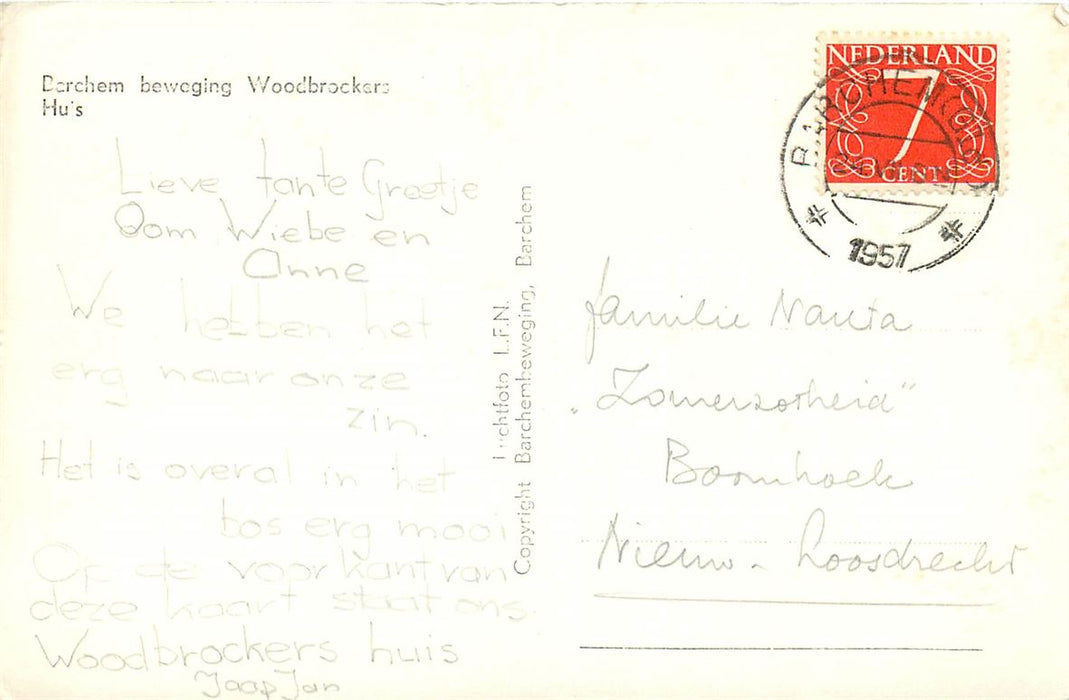 Barchem beweging Woodbrockers
Huis
Lieve tante Greetje
Oom Wiebe en
Anne
We hebben het
erg naar onze
zin.
Het is overal in het
bos erg mooi
Op de voorkant van
deze kaart staat ons
Woodbrockers huis
Jaap Jan
Luchtfoto L.F.N.
Copyright Barchembeweging, Barchem
NEDERLAND
7
CENT
BARCHEM (GLD)
1957
familie Nauta
"Zomerzotheid"
Boomhoek
Nieuw-Loosdrecht